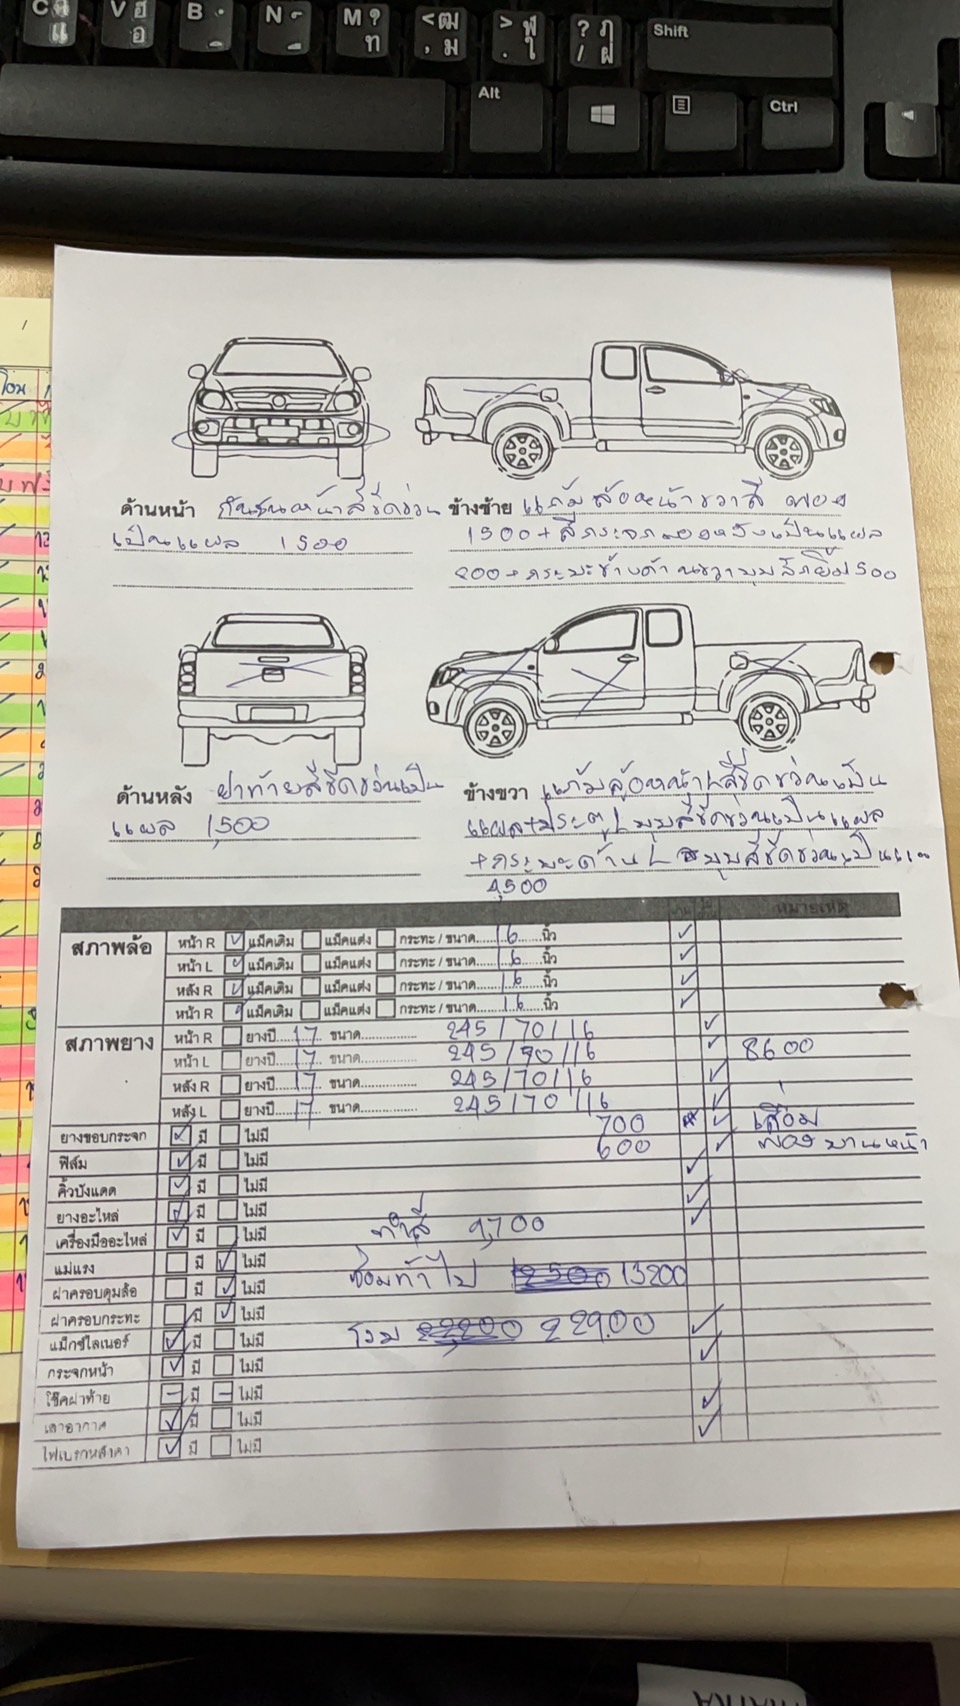 C แ
V ฮ อ
B
N
M ? ท
< ฒ , ม
> ฬ . ใ
? ฦ / ฝ
Shift
Alt
Ctrl
โอน
ด้านหน้า กันชนหน้าสีขีดข่วน
เป็นแผล 1500
ข้างซ้าย แก้มล้อหน้าขวาสีพอง
1500+สีกระจกมองหลังเป็นแผล
200+กระบะข้างด้านขวามุมสี 1500
ด้านหลัง ฝาท้ายสีขีดข่วนเป็น
แผล 1,500
ข้างขวา แก้มล้อหน้า L สีขีดข่วนเป็น
แผล+ประตู L มุมสีขีดข่วนเป็นแผล
+กระบะด้าน L มุมสีขีดข่วนเป็นแผล
4,500
หมายเหตุ
สภาพล้อ หน้า R แม็คเดิม แม็คแต่ง กระทะ / ขนาด 16 นิ้ว
หน้า L แม็คเดิม แม็คแต่ง กระทะ / ขนาด 16 นิ้ว
หลัง R แม็คเดิม แม็คแต่ง กระทะ / ขนาด 16 นิ้ว
หน้า R แม็คเดิม แม็คแต่ง กระทะ / ขนาด 16 นิ้ว
สภาพยาง หน้า R ยางปี 17 ขนาด 245/70/16
หน้า L ยางปี 17 ขนาด 245/70/16 8600
หลัง R ยางปี 17 ขนาด 245/70/16
หลัง L ยางปี 17 ขนาด 245/70/16
ยางขอบกระจก มี ไม่มี 700 เสื่อม
ฟิล์ม มี ไม่มี 600 พองบานหน้า
คิ้วบังแดด มี ไม่มี
ยางอะไหล่ มี ไม่มี
เครื่องมืออะไหล่ มี ไม่มี ทำสี 9,700
แม่แรง มี ไม่มี
ฝาครอบดุมล้อ มี ไม่มี ซ่อมทั่วไป 12500 13200
ฝาครอบกระทะ มี ไม่มี
แม็กซ์ไลเนอร์ มี ไม่มี รวม 22,200 22900
กระจกหน้า มี ไม่มี
โช๊คฝาท้าย มี ไม่มี
เสาอากาศ มี ไม่มี
ไฟเบรกหลังคา มี ไม่มี